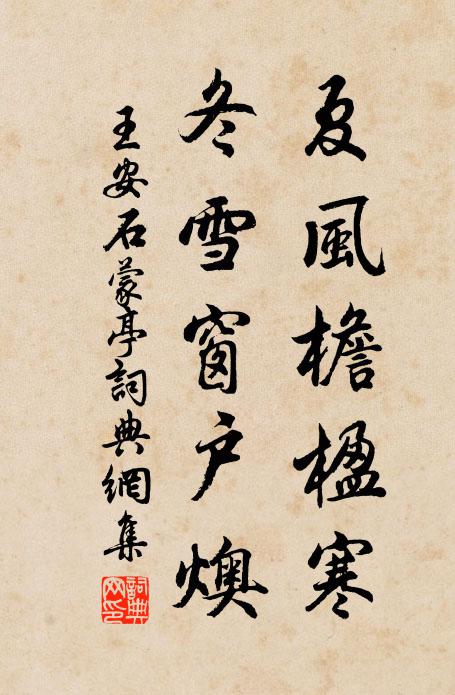 夏風檐楹寒
冬雪窗户燠
王安石蒙亭詞典網集
詞典网印